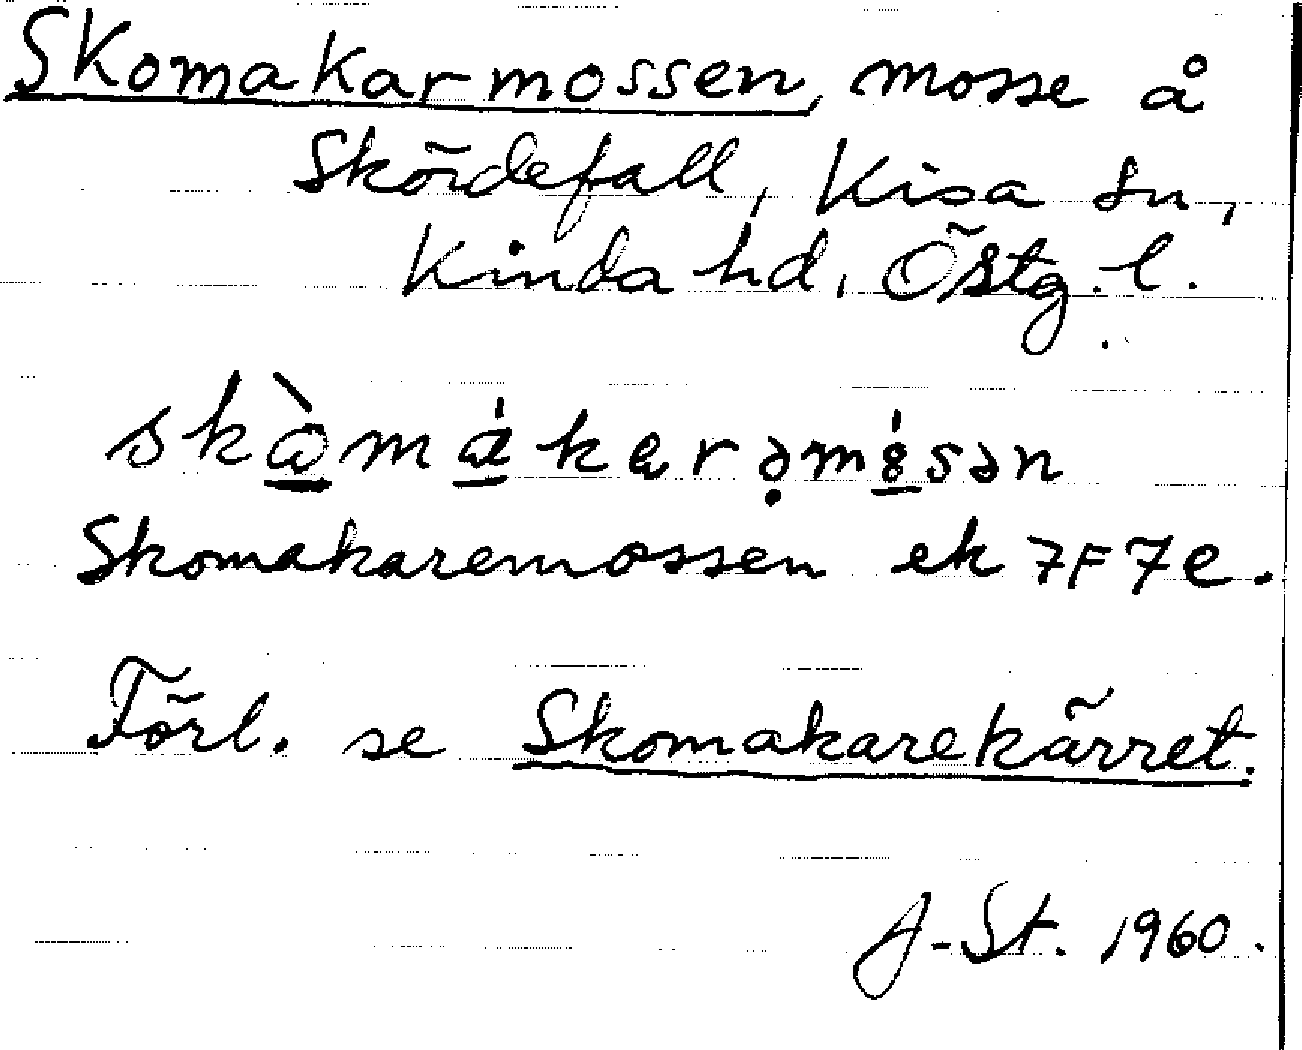 Skomakarmossen, mosse å
Skördefall, Kisa sn,
Kinda hd, Östg. l.
Skomakaremossen ek 7F7e.
Förl. se Skomakarekärret.
J-St. 1960.